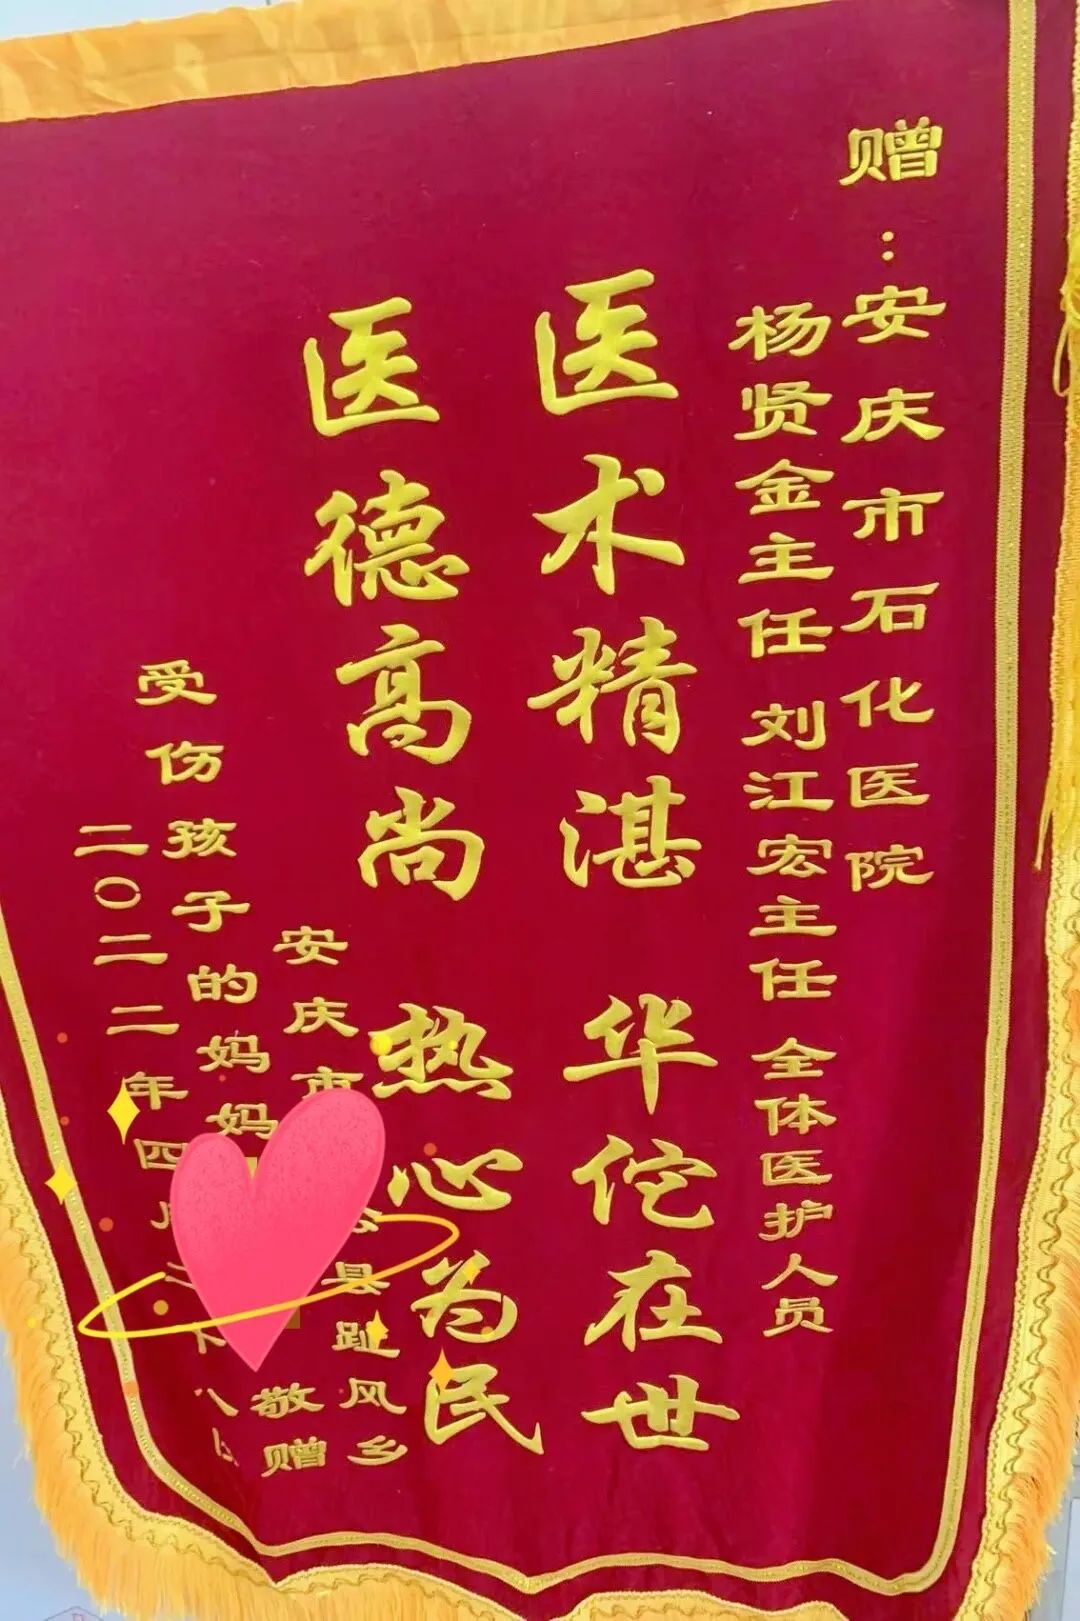 赠：安庆市石化医院
杨贤金主任 刘江宏主任 全体医护人员
医术精湛 华佗在世
医德高尚 热心为民
安庆市
县趾风乡
受伤孩子的妈妈
敬赠
二〇二二年四月二十八日